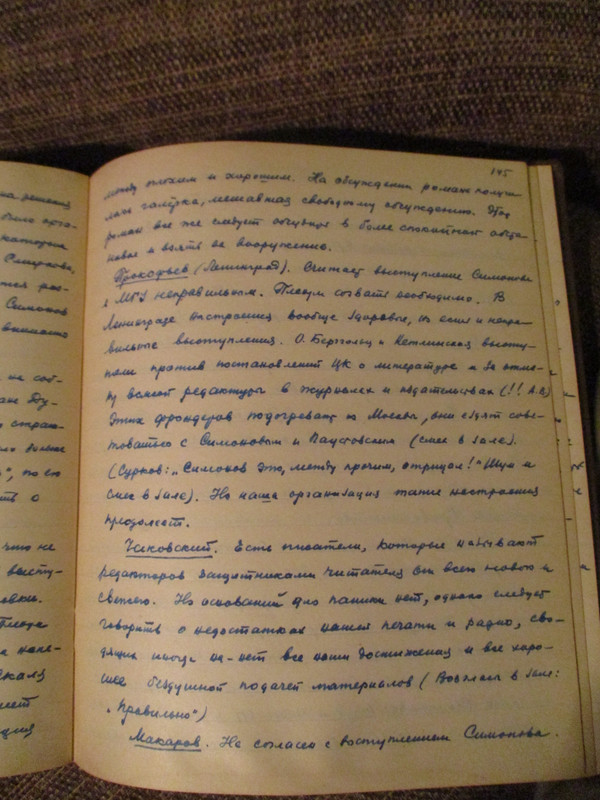 145
между плохим и хорошим. На обсуждении романа получи-
лась галёрка, мешавшая свободному обсуждению. Этот
роман все же следует обсудить в более спокойной обста-
новке и взять на вооружение.
Прокофьев (Ленинград). Считает выступление Симонова
в МГУ неправильным. Пленум созвать необходимо. В
Ленинграде настроения вообще здоровые, но есть и непра-
вильные выступления. О. Берггольц и Кетлинская высту-
пали против постановлений ЦК о литературе и за отме-
ну всякой редактуры в журналах и издательствах (!! А.В.)
Этих фрондеров подогревают из Москвы, они ездят сове-
товаться с Симоновым и Паустовским (смех в зале).
(Сурков: „Симонов это, между прочим, отрицал!" Шум и
смех в зале). Но наша организация такие настроения
преодолеет.
Чаковский. Есть писатели, которые называют
редакторов защитниками читателя от всего нового и
свежего. Но оснований для паники нет, однако следует
говорить о недостатках нашей печати и радио, сво-
дящих иногда на-нет все наши достижения и все хоро-
шее бездушной подачей материалов (Возгласы в зале:
„Правильно")
Макаров. Не согласен с выступлением Симонова.
на решения
было
Смирнова,
Симонов
не соб-
", по его
о
что не
высту-